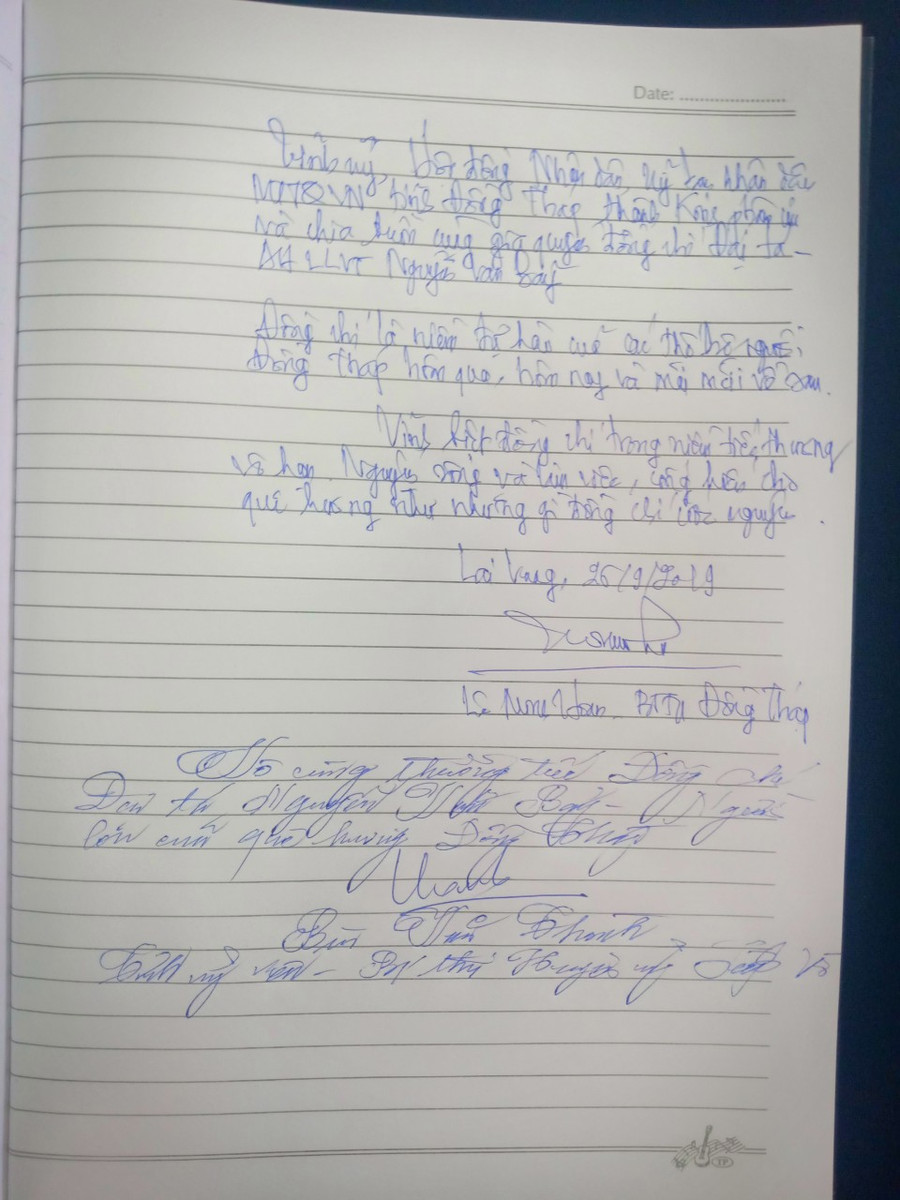 Date: ......................
Tỉnh uỷ, Hội đồng Nhân dân, Uỷ ban nhân dân
MTTQVN tỉnh Đồng Tháp thành kính phân ưu
và chia buồn cùng gia quyến đồng chí Đại tá -
AHLLVT Nguyễn Văn Bảy
Đồng chí là niềm tự hào của các thế hệ người
Đồng Tháp hôm qua, hôm nay và mãi mãi về sau.
Vĩnh biệt đồng chí trong niềm tiếc thương
vô hạn. Nguyện sống và làm việc, cống hiến cho
quê hương như những gì đồng chí ước nguyện.
Lai Vung, 25/9/2019
Lê Minh Hoan - BTTU Đồng Tháp
Vô cùng thương tiếc Đồng chí
Đại tá Nguyễn Văn Bảy - Người
lớn của quê hương Đồng Tháp
Thanh
Bùi Thanh
Tỉnh uỷ viên - Bí thư Huyện uỷ Lấp Vò
TP